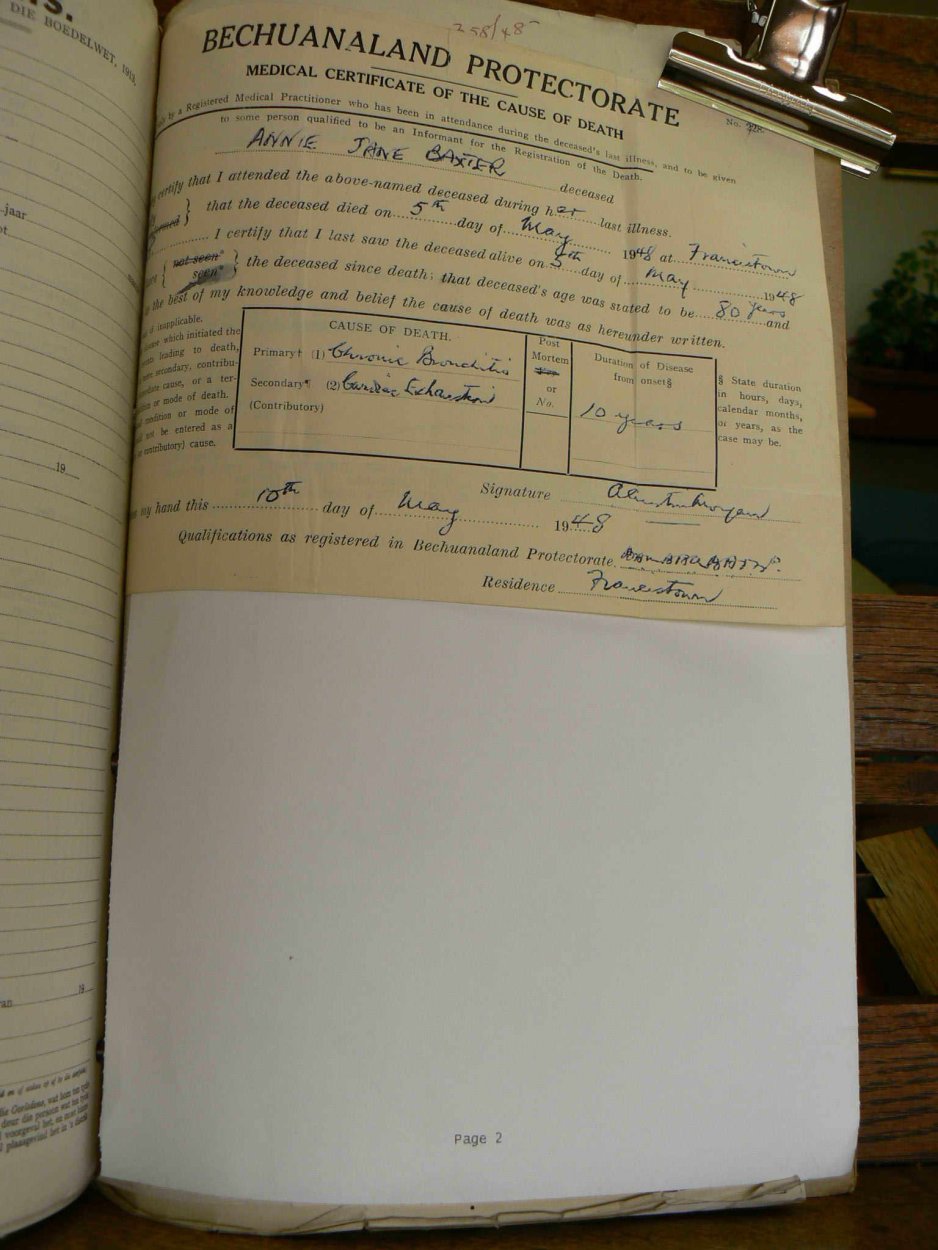 DIE BOEDELWET, 1913.
-jaar
19
19
258/48
BECHUANALAND PROTECTORATE
MEDICAL CERTIFICATE OF THE CAUSE OF DEATH
No.
by a Registered Medical Practitioner who has been in attendance during the deceased's last illness, and to be given
to some person qualified to be an Informant for the Registration of the Death.
ANNIE JANE BAXTER deceased
certify that I attended the above-named deceased during her last illness.
that the deceased died on 5th day of May 1948 at Francistown
I certify that I last saw the deceased alive on day of May 1948
not seen*
seen*
the deceased since death; that deceased's age was stated to be 80 years and
the best of my knowledge and belief the cause of death was as hereunder written.
if inapplicable.
which initiated the
leading to death,
secondary, contribu-
cause, or a ter-
or mode of death.
condition or mode of
not be entered as a
contributory) cause.
CAUSE OF DEATH.
Primary† (1) Chronic Bronchitis
Secondary¶ (2) Cardiac Exhaustion
(Contributory)
Post
Mortem
or
No.
Duration of Disease
from onset§
10 years
§ State duration
in hours, days,
calendar months,
or years, as the
case may be.
Signature
my hand this 10th day of May 1948
Qualifications as registered in Bechuanaland Protectorate.
Residence Francistown
Page 2